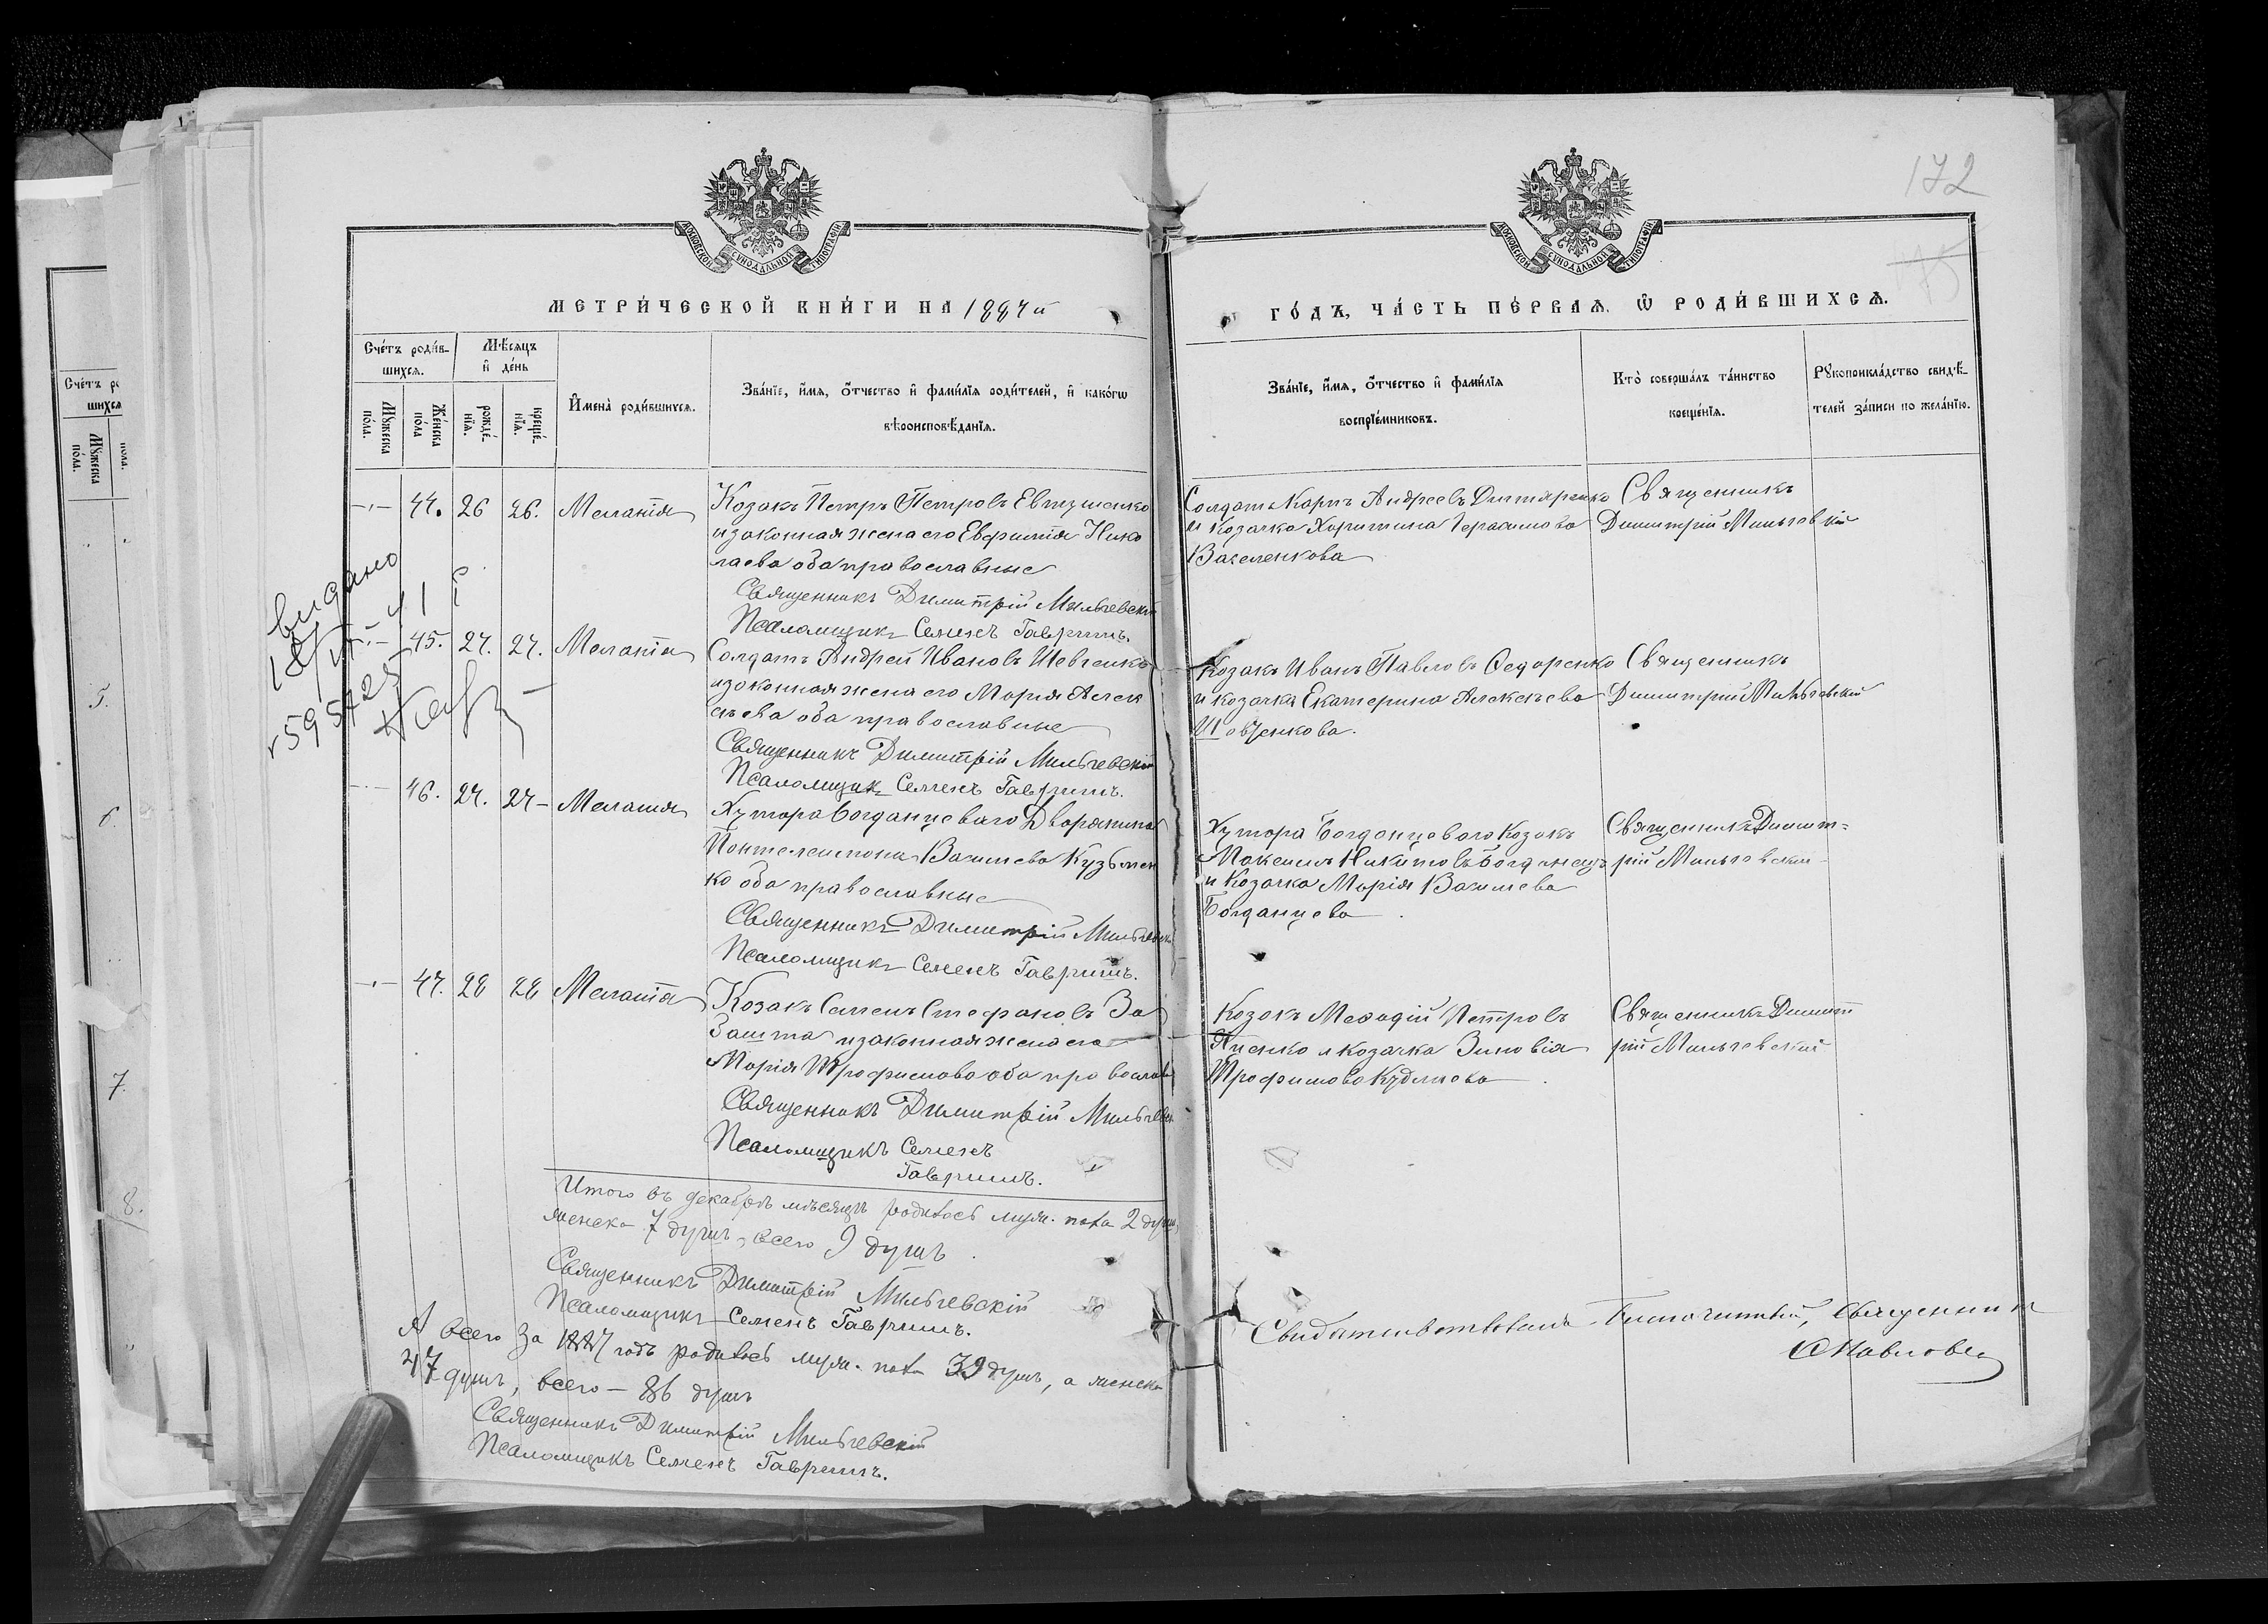 172
175
МОСКОВСКОЙ СУНОДАЛЬНОЙ ТИПОГРАФІИ
МОСКОВСКОЙ СУНОДАЛЬНОЙ ТИПОГРАФІИ
МЕТРИ́ЧЕСКОЙ КНИ́ГИ НА 1887й
ГО́ДЪ, ЧА́СТЬ ПЕ́РВАЯ, Ѡ РОДИ́ВШИХСЯ.
Сче́тъ роди́в-
шихся.
Мѣ́сяцъ
и де́нь
Мꙋ́жеска по́ла.
Же́нска по́ла
рожде́-
нїя.
креще́-
нїя.
Имена̀ роди́вшихся.
Зва́нїе, и́мя, о́тчество и фами́лїя роди́телей, и како́гѡ
вѣроисповѣ́данїя.
Зва́нїе, и́мя, о́тчество и фами́лїя
воспрїе́мниковъ.
Кто̀ соверша́лъ та́инство
креще́нїя.
Рꙋкоприкла́дство свидѣ́-
телей за́писи по жела́нїю.
44. 26 26. Меланія
Козакъ Петръ Петровъ Евтушенко
и законная жена его Евфимія Нико
лаева оба православные
Священникъ Димитрій Мильчевскій
Псаломщикъ Семенъ Гавришъ.
Солдатъ Карпъ Андреевъ Дихтяренко
и Козачка Харитина Герасимова
Василенкова
Священникъ
Димитрій Мильчевскій
видано
18/VI 41 р
595725
45. 27. 27. Меланія
Солдатъ Андрей Ивановъ Шевченко
и законная жена его Марія Алек
сѣева оба православные
Священникъ Димитрій Мильчевскій
Псаломщикъ Семенъ Гавришъ.
Козакъ Иванъ Павловъ Сидоренко
и козачка Екатерина Алексѣева
Шевченкова.
Священникъ
Димитрій Мильчевскій
46. 27. 27 Мелания
Хутора Богданцеваго Дворянина
Пантелеимона Васильева Кузьмен
ко оба православные
Священникъ Димитрій Мильчевскій
Псаломщикъ Семенъ Гавришъ.
Хутора Богданцеваго Козакъ
Максимъ Никитовъ Богданецъ
и Козачка Марія Васильева
Богданцева
Священникъ Димит=
рій Мильчевскій
47. 28 28 Меланія
Козакъ Семенъ Стефановъ За
и законная жена его
Марія Трофимова оба православ
Священникъ Димитрій Мильчевск
Псаломщикъ Семенъ
Гавришъ.
Козакъ Меѳодій Петровъ
и козачка Зиновія
Трофимова
Священникъ Димит
рій Мильчевскій
Итого въ декабрѣ мѣсяцѣ родилось муж. пола 2 души,
женска 7 душъ, всего 9 душъ.
Священникъ Димитрій Мильчевскій
Псаломщикъ Семенъ Гавришъ.
А всего за 1887 годъ родилось муж. пола 39 душъ, а женска
47 душъ, всего – 86 душъ
Священникъ Димитрій Мильчевскій
Псаломщикъ Семенъ Гавришъ.
Свидѣтельствовалъ Благочинный, Священник
Павловъ
Сче́тъ ро
шихся
Мꙋ́жеска по́ла.
5.
6.
7.
8.